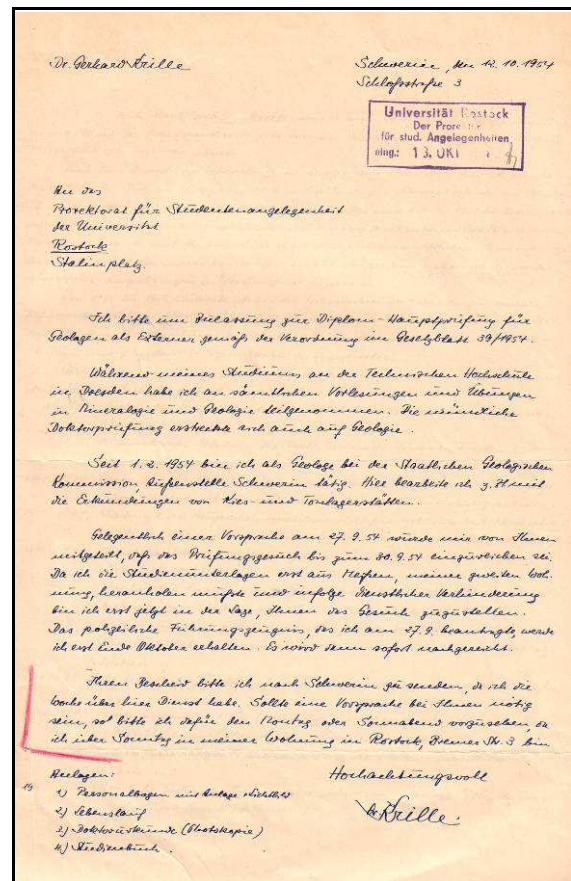 Dr. Gerhard Krille
Schwerin, den 12.10.1954
Schloßstraße 3
Universität Rostock
Der Prorektor
für stud. Angelegenheiten
eing.: 13. OKT
An das
Prorektorat für Studentenangelegenheit
der Universität
Rostock
Stalinplatz.
Ich bitte um Zulassung zur Diplom-Hauptprüfung für
Geologen als Externer gemäß der Verordnung im Gesetzblatt 39/1954.
Während meines Studiums an der Technischen Hochschule
in Dresden habe ich an sämtlichen Vorlesungen und Übungen
in Mineralogie und Geologie teilgenommen. Die mündliche
Doktorprüfung erstreckte sich auch auf Geologie.
Seit 1.2.1954 bin ich als Geologe bei der Staatlichen Geologischen
Kommission, Außenstelle Schwerin tätig. Hier bearbeite ich z. Zt
die Erkundungen von Kies- und Tonlagerstätten.
Gelegentlich einer Vorsprache am 27.9.54 wurde mir von Ihnen
mitgeteilt, daß das Prüfungsgesuch bis zum 30.9.54 einzureichen sei.
Da ich die Studienunterlagen erst aus Meißen, meiner zweiten Woh-
nung, heranholen mußte und infolge dienstlicher Verhinderung
bin ich erst jetzt in der Lage, Ihnen das Gesuch zuzustellen.
Das polizeiliche Führungszeugnis, das ich am 27.9. beantragte, werde
ich erst Ende Oktober erhalten. Es wird dann sofort nachgereicht.
Ihren Bescheid bitte ich nach Schwerin zu senden, da ich die
Woche über hier Dienst habe. Sollte eine Vorsprache bei Ihnen nötig
sein, so bitte ich dafür den Montag oder Sonnabend vorzusehen, da
ich über Sonntag in meiner Wohnung in Rostock, Bremer Str. 3 bin
Hochachtungsvoll
Dr. Krille.
Anlagen:
1) Personalbogen mit Anlage Lichtbild
2) Lebenslauf
3) Doktorurkunde (Photokopie)
4) Studienbuch.